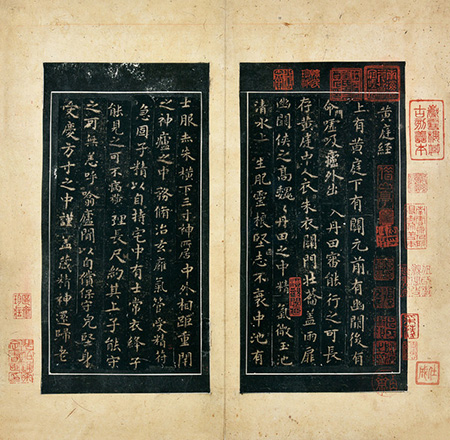 黄庭經
上有黄庭下有關元前有幽闕後有
命嘘吸廬外出入丹田審能行之可長
存黄庭中人衣朱衣關門壯籥蓋兩扉
幽闕俠之高巍巍丹田之中精氣微玉池
清水上生肥靈根堅志不衰中池有
士服赤朱横下三寸神所居中外相距重閉
之神廬之中務脩治玄廱氣管受精符
急固子精以自持宅中有士常衣絳子
能見之可不病横理長尺約其上子能守
之可無恙呼噏廬間以自償保守皃堅身
受慶方寸之中謹蓋藏精神還歸老